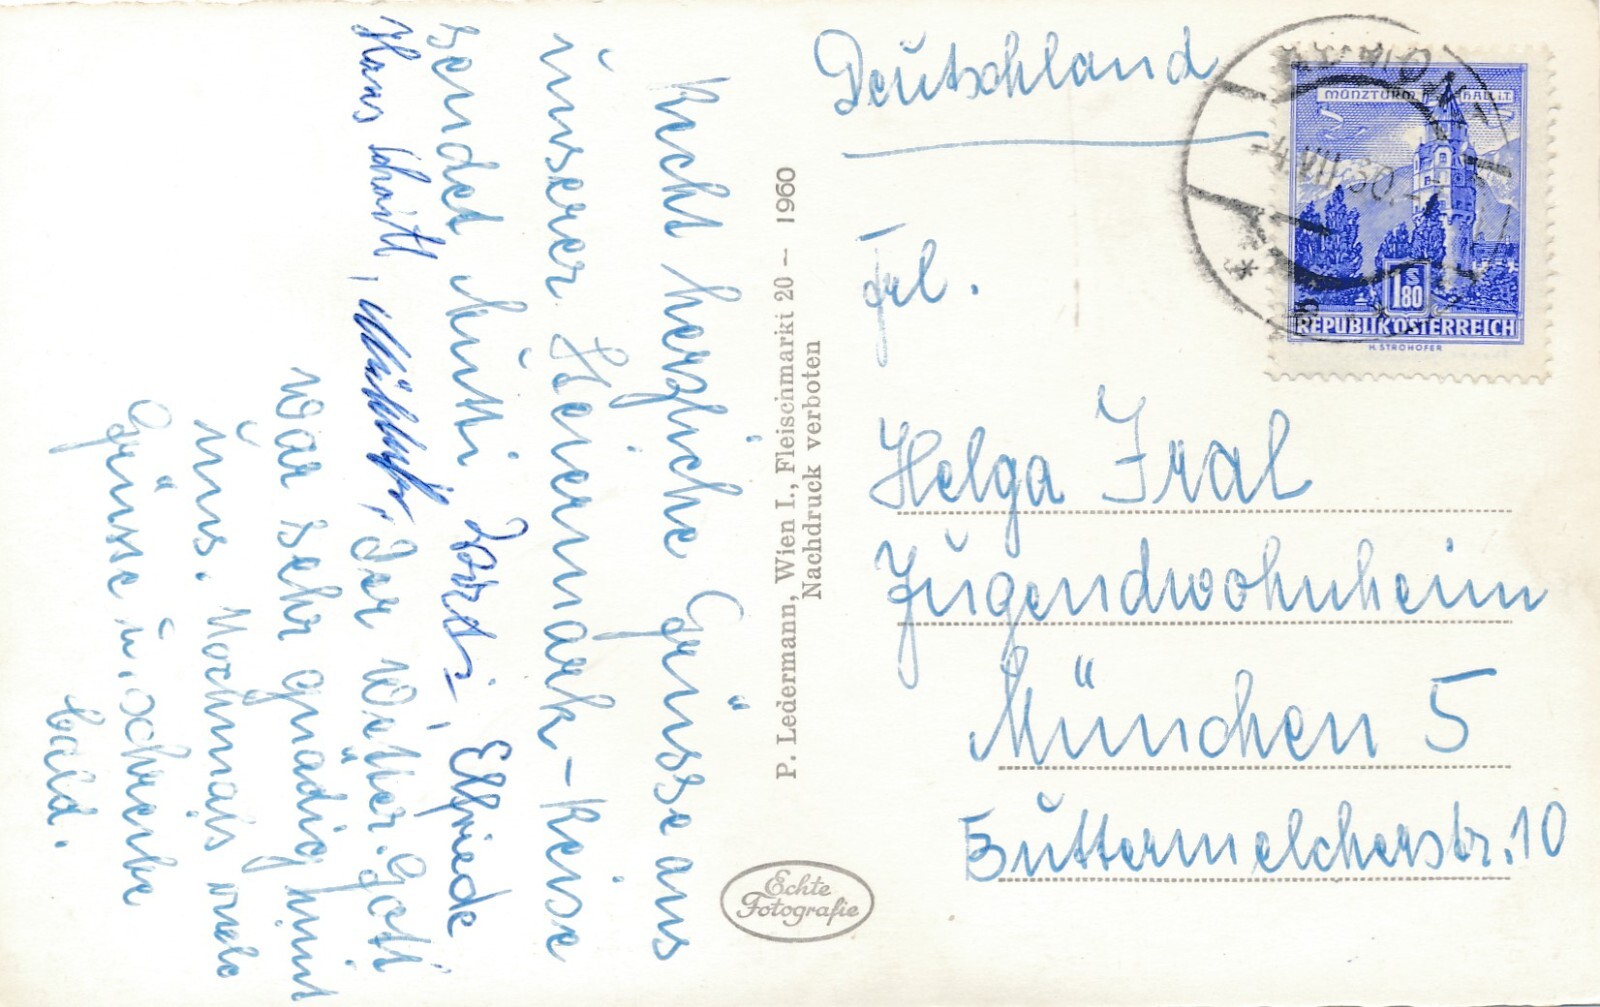 Recht herzliche Grüsse aus
unserer Steiermark-Reise
sendet Mutti,
Elfriede
Hans
Der Wetter-Gott
war sehr gnädig mit
uns. Nochmals viele
Grüsse u. schreibe
bald.
P. Ledermann, Wien I., Fleischmarkt 20 – 1960
Nachdruck verboten
Echte
Fotografie
Deutschland
MÜNZTURM HALL i.T.
-4.VII.60
S
1.80
REPUBLIK ÖSTERREICH
H. STROHOFER
Frl.
Helga Iral
Jugendwohnheim
München 5
Buttermelcherstr. 10